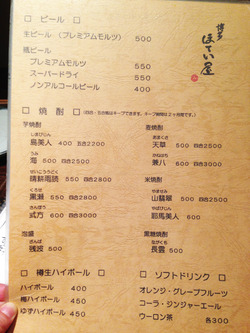 博多
ほてい屋
□ ビール □
生ビール (プレミアムモルツ) 500
瓶ビール
プレミアムモルツ 550
スーパードライ 550
ノンアルコールビール 400
□ 焼酎 □
芋焼酎
しまびじん
島美人 400 五合2200
うみ
海 500 四合2500
せいこううどく
晴耕雨読 550 四合2800
くろせ
黒瀬 550 四合2800
600 四合3000
麦焼酎
あまくさ
天草 500 四合2500
かねはち
兼八 600 四合3000
米焼酎
やませみ
山翡翠 500 四合2500
やばびじん
耶馬美人 600
泡盛
ざんぱ
残波 500
黒糖焼酎
ながくも
長雲 500
□ 樽生ハイボール □
ハイボール 400
梅ハイボール 450
ゆずハイボール 450
□ ソフトドリンク □
オレンジ・グレープフルーツ
コーラ・ジンジャーエール
ウーロン茶 各300